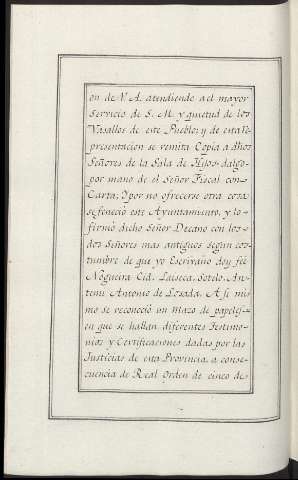 on de V.A. atendiendo a el mayor
Servicio de S.M. y quietud de los
Vasallos de este Pueblo; y de esta Re
presentacion se remita Copia a dhos
Señores de la Sala de Hijos-dalgo-
por mano de el Señor Fiscal con-
Carta; Y por no ofrecerse otra cosa
se feneció este Ayuntamiento, y lo-
firmó dicho Señor Decano con los-
dos Señores mas antiguos segun cos-
tumbre de que yo Escrivano doy feé
Nogueira Cid, Laiseca, Sotelo, An-
temi Antonio de Losada. A si mis
mo se reconoció un Mazo de papeles-
en que se hallan diferentes Testimo-
nios y Certificaciones dadas por las
Justicias de esta Provincia, a conse-
cuencia de Real Orden de cinco de-